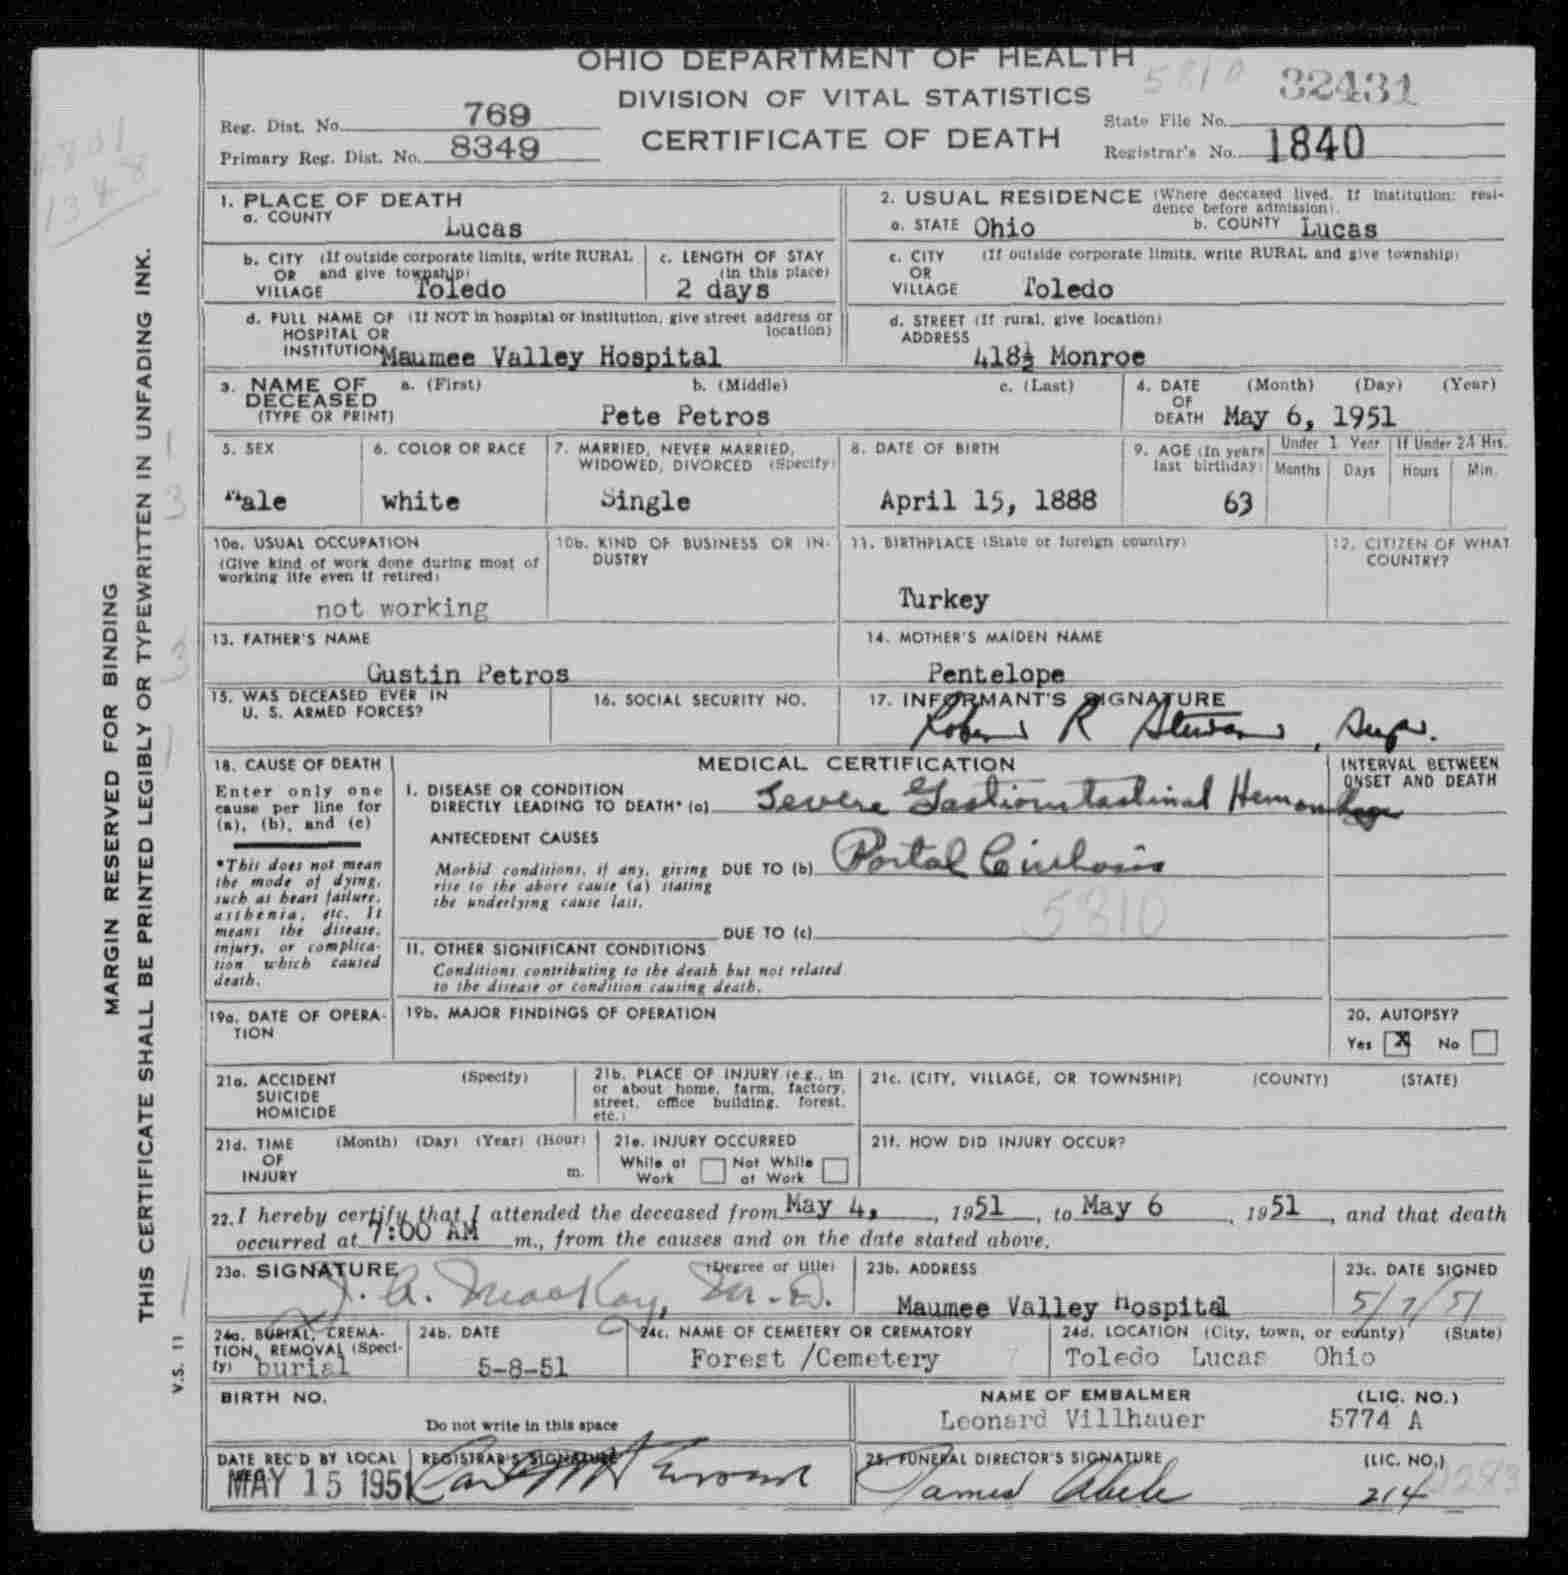 OHIO DEPARTMENT OF HEALTH
DIVISION OF VITAL STATISTICS
CERTIFICATE OF DEATH
Reg. Dist. No. 769
Primary Reg. Dist. No. 8349
5810
State File No. 32431
Registrar's No. 1840
1. PLACE OF DEATH
a. COUNTY Lucas
2. USUAL RESIDENCE (Where deceased lived. If institution: residence before admission).
a. STATE Ohio b. COUNTY Lucas
b. CITY (If outside corporate limits, write RURAL
OR and give township)
VILLAGE Toledo
c. LENGTH OF STAY
(in this place)
2 days
c. CITY (If outside corporate limits, write RURAL and give township)
OR
VILLAGE Toledo
d. FULL NAME OF (If NOT in hospital or institution, give street address or
HOSPITAL OR location)
INSTITUTION Maumee Valley Hospital
d. STREET (If rural, give location)
ADDRESS
418½ Monroe
3. NAME OF DECEASED (TYPE OR PRINT)
a. (First) b. (Middle) c. (Last)
Pete Petros
4. DATE OF DEATH (Month) (Day) (Year)
May 6, 1951
5. SEX
Male
6. COLOR OR RACE
white
7. MARRIED, NEVER MARRIED,
WIDOWED, DIVORCED (Specify)
Single
8. DATE OF BIRTH
April 15, 1888
9. AGE (In years
last birthday)
63
Under 1 Year
Months Days
If Under 24 Hrs.
Hours Min.
10a. USUAL OCCUPATION
(Give kind of work done during most of
working life even if retired)
not working
10b. KIND OF BUSINESS OR IN-
DUSTRY
11. BIRTHPLACE (State or foreign country)
Turkey
12. CITIZEN OF WHAT
COUNTRY?
13. FATHER'S NAME
Gustin Petros
14. MOTHER'S MAIDEN NAME
Pentelope
15. WAS DECEASED EVER IN
U. S. ARMED FORCES?
16. SOCIAL SECURITY NO.
17. INFORMANT'S SIGNATURE
Robert R Stewart, Supr.
18. CAUSE OF DEATH
Enter only one
cause per line for
(a), (b), and (c)
*This does not mean
the mode of dying,
such as heart failure,
asthenia, etc. It
means the disease,
injury, or complica-
tion which caused
death.
MEDICAL CERTIFICATION
INTERVAL BETWEEN
ONSET AND DEATH
I. DISEASE OR CONDITION
DIRECTLY LEADING TO DEATH* (a) Severe Gastiointastinal Hemorrhage
ANTECEDENT CAUSES
Morbid conditions, if any, giving DUE TO (b) Portal Cirrhosis
rise to the above cause (a) stating
the underlying cause last.
5810
DUE TO (c)
II. OTHER SIGNIFICANT CONDITIONS
Conditions contributing to the death but not related
to the disease or condition causing death.
19a. DATE OF OPERA-
TION
19b. MAJOR FINDINGS OF OPERATION
20. AUTOPSY?
Yes X No
21a. ACCIDENT (Specify)
SUICIDE
HOMICIDE
21b. PLACE OF INJURY (e.g., in
or about home, farm, factory,
street, office building, forest,
etc.)
21c. (CITY, VILLAGE, OR TOWNSHIP) (COUNTY) (STATE)
21d. TIME (Month) (Day) (Year) (Hour)
OF
INJURY m.
21e. INJURY OCCURRED
While at Work Not While at Work
21f. HOW DID INJURY OCCUR?
22. I hereby certify that I attended the deceased from May 4, , 1951, to May 6 , 1951, and that death
occurred at 7:00 AM m., from the causes and on the date stated above.
23a. SIGNATURE (Degree or title)
J. A. MacKay, M.D.
23b. ADDRESS
Maumee Valley Hospital
23c. DATE SIGNED
5/7/51
24a. BURIAL, CREMA-
TION, REMOVAL (Speci-
fy) burial
24b. DATE
5-8-51
24c. NAME OF CEMETERY OR CREMATORY
Forest /Cemetery
24d. LOCATION (City, town, or county) (State)
Toledo Lucas Ohio
BIRTH NO.
Do not write in this space
NAME OF EMBALMER (LIC. NO.)
Leonard Villhauer 5774 A
DATE REC'D BY LOCAL
MAY 15 1951
REGISTRAR'S SIGNATURE
25. FUNERAL DIRECTOR'S SIGNATURE (LIC. NO.)
James Abele 214
MARGIN RESERVED FOR BINDING
THIS CERTIFICATE SHALL BE PRINTED LEGIBLY OR TYPEWRITTEN IN UNFADING INK.
V.S. 11